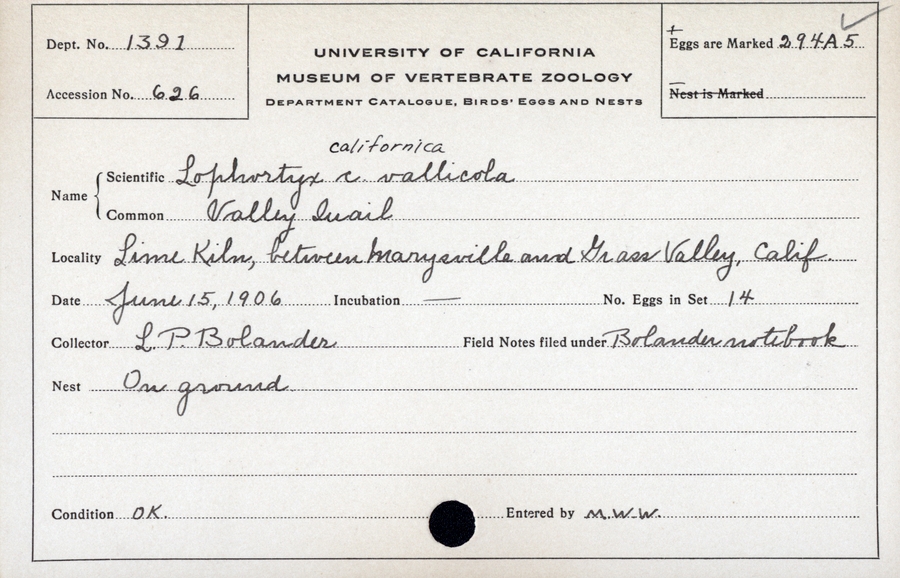 Dept. No. 1391
Accession No. 626
UNIVERSITY OF CALIFORNIA
MUSEUM OF VERTEBRATE ZOOLOGY
DEPARTMENT CATALOGUE, BIRDS' EGGS AND NESTS
+
Eggs are Marked 294A5
Nest is Marked
californica
Name
Scientific Lophortyx c. vallicola
Common Valley Quail
Locality Lime Kiln, between Marysville and Grass Valley, Calif.
Date June 15, 1906 Incubation — No. Eggs in Set 14
Collector L. P. Bolander Field Notes filed under Bolander notebook
Nest On ground
Condition OK. Entered by M.W.W.